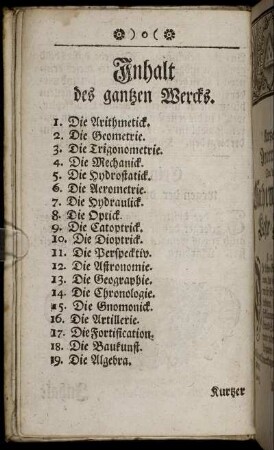 ) o (
Inhalt
des gantzen Wercks.
1. Die Arithmetick.
2. Die Geometrie.
3. Die Trigonometrie.
4. Die Mechanick.
5. Die Hydrostatick.
6. Die Aerometrie.
7. Die Hydraulick.
8. Die Optick.
9. Die Catoptrick.
10. Die Dioptrick.
11. Die Perspektiv.
12. Die Astronomie.
13. Die Geographie.
14. Die Chronologie.
15. Die Gnomonick.
16. Die Artillerie.
17. Die Fortification.
18. Die Baukunst.
19. Die Algebra.
Kurtzer